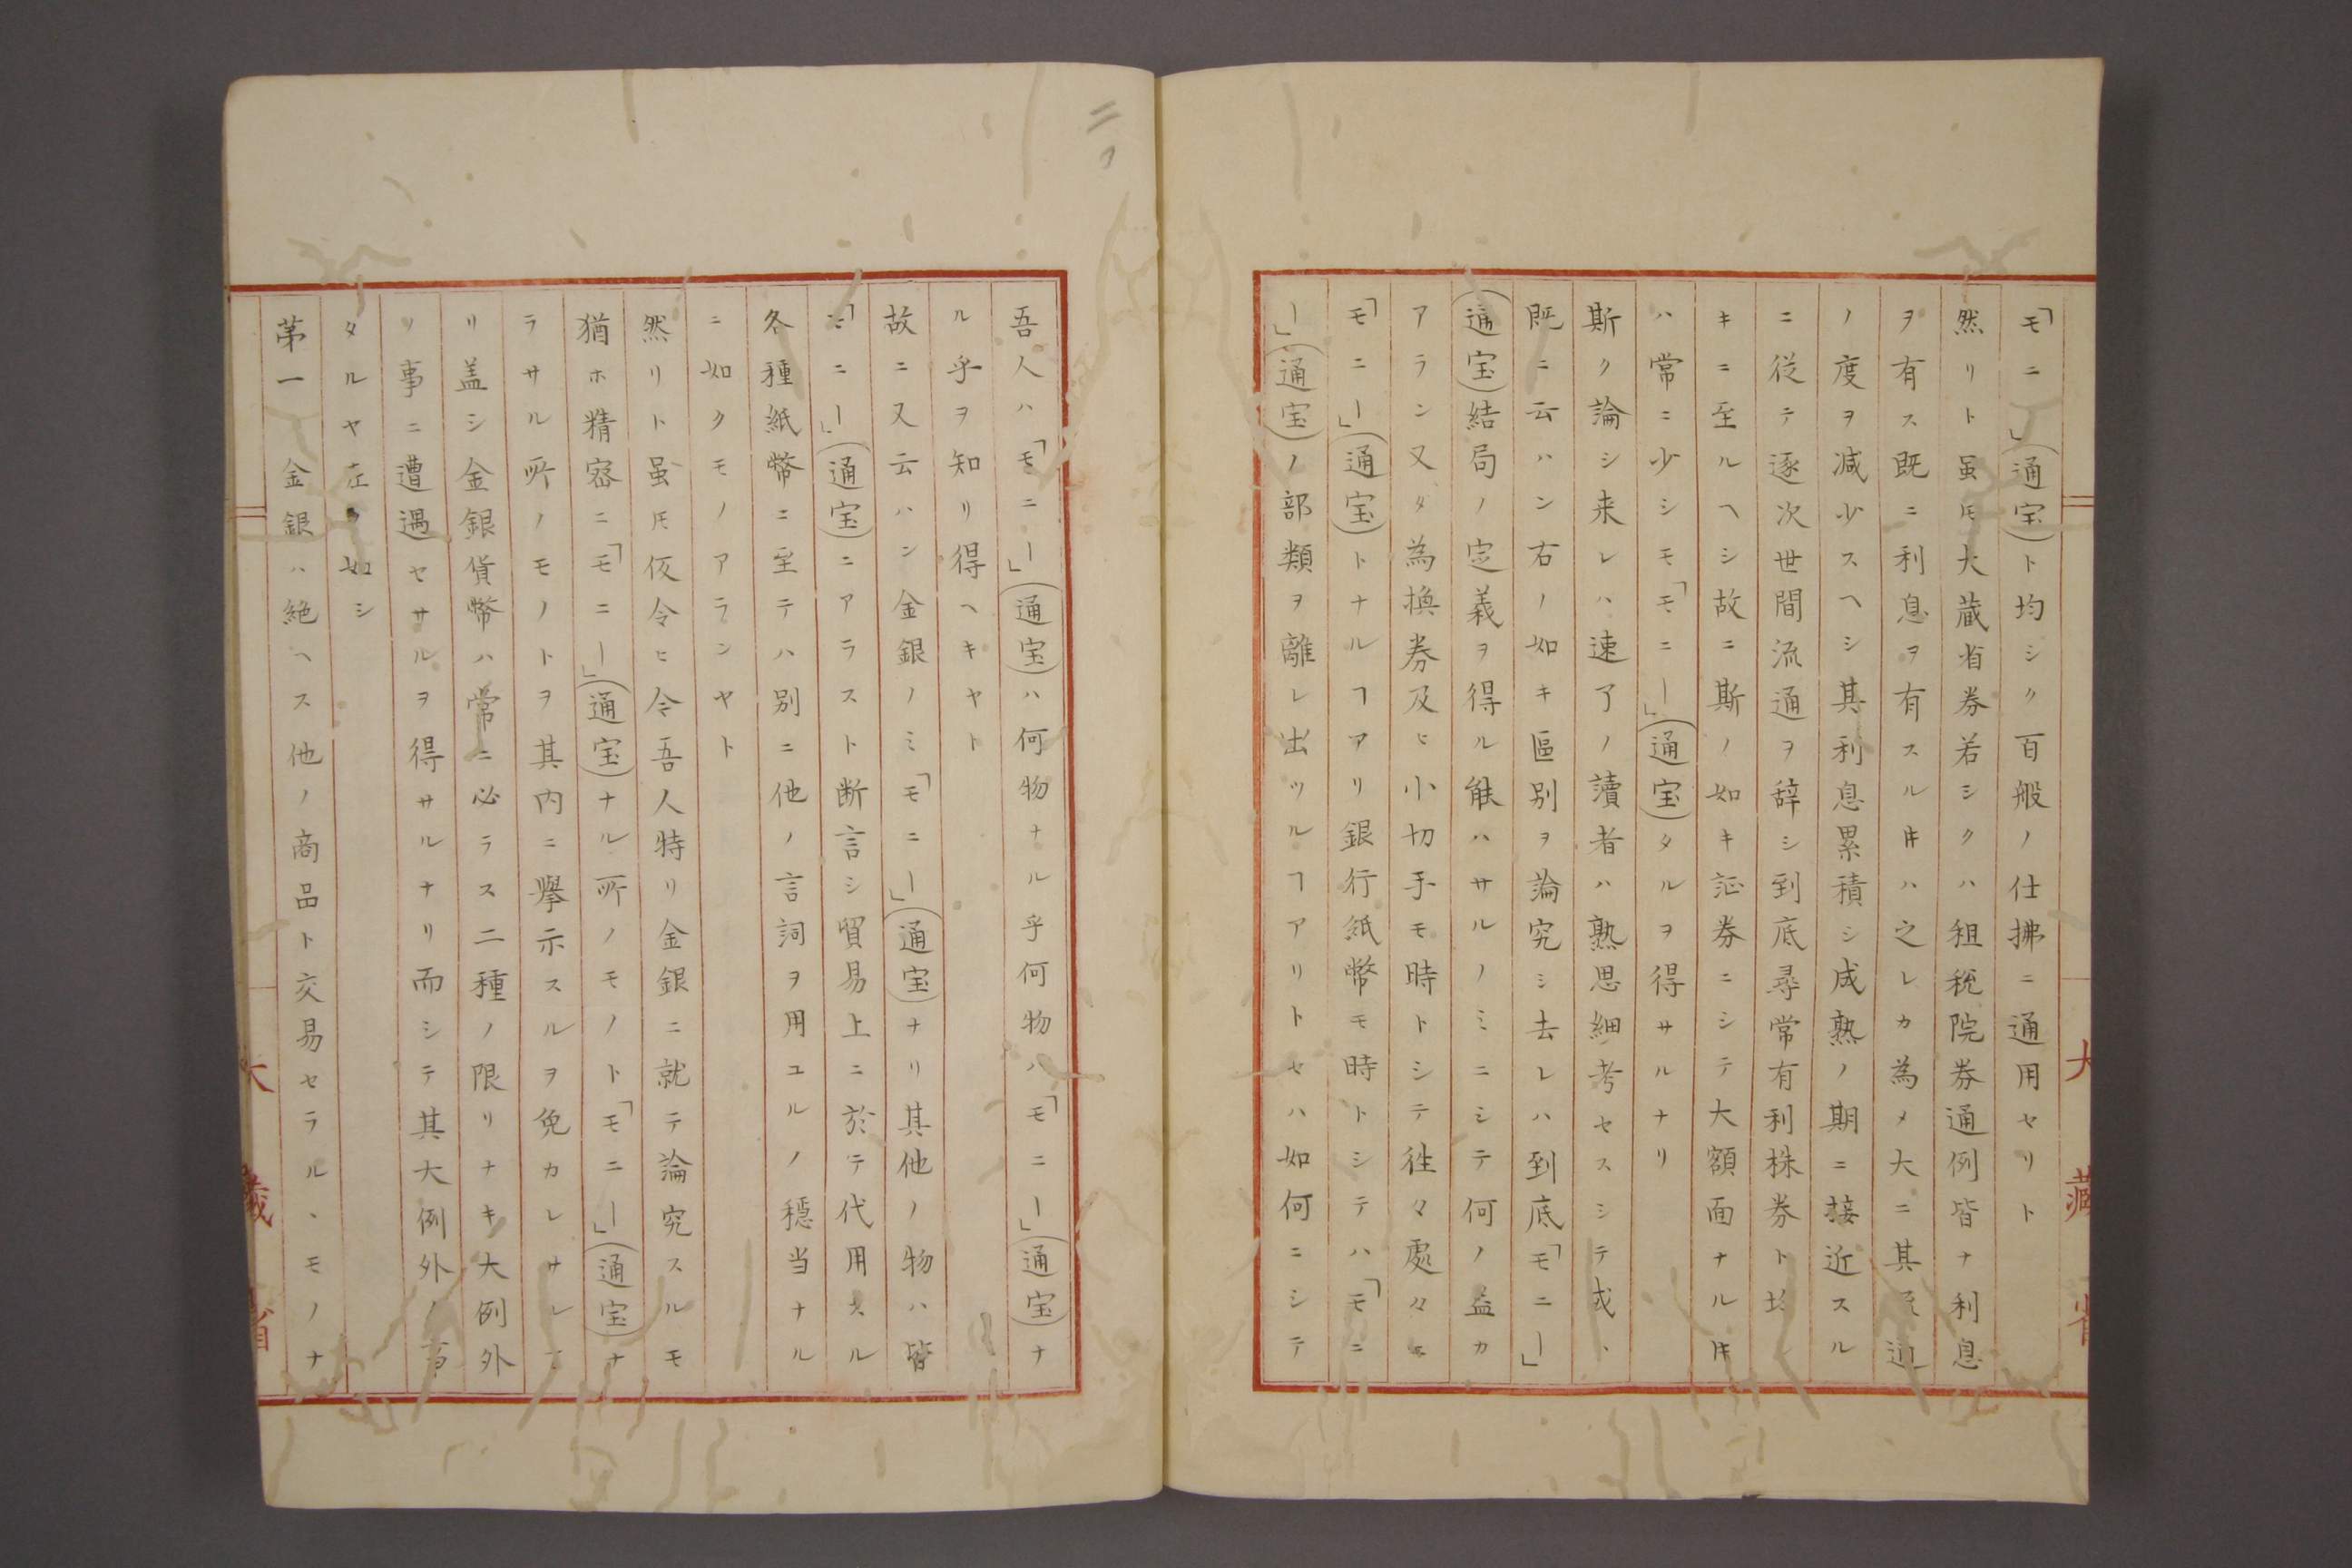 「モニー」(通宝)ト均シク百般ノ仕拂ニ通用セリト
然リト虽𪜈大蔵省券若シクハ租税院券通例皆ナ利息
ヲ有ス既ニ利息ヲ有スル𪜈ハ之レカ為メ大ニ其流通
ノ度ヲ減少スヘシ其利息累積シ成熟ノ期ニ接近スル
ニ従テ逐次世間流通ヲ辞シ到底尋常有利株券ト均シ
キニ至ルヘシ故ニ斯ノ如キ証券ニシテ大額面ナル𪜈
ハ常ニ少シモ「モニー」(通宝)タルヲ得サルナリ
斯ク論シ来レハ速了ノ讀者ハ熟思細考セスシテ或ハ
既ニ云ハン右ノ如キ區別ヲ論究シ去レハ到底「モニー」
(通宝)結局ノ定義ヲ得ル能ハサルノミニシテ何ノ益カ
アラン又タ為換券及ヒ小切手モ時トシテ往々處々
「モニー」(通宝)トナルヿアリ銀行紙幣モ時トシテハ「モニ
ー」(通宝)ノ部類ヲ離レ出ツルヿアリトセハ如何ニシテ
吾人ハ「モニー」(通宝)ハ何物ナル乎何物ハ「モニー」(通宝)ナ
ル乎ヲ知リ得ヘキヤト
故ニ又云ハン金銀ノミ「モニー」(通宝)ナリ其他ノ物ハ皆
「モニー」(通宝)ニアラスト断言シ貿易上ニ於テ代用スル
各種紙幣ニ至テハ別ニ他ノ言詞ヲ用ユルノ穏当ナル
ニ如クモノアランヤト
然リト虽𪜈仮令ヒ令吾人特リ金銀ニ就テ論究スルモ
猶ホ精密ニ「モニー」(通宝)ナル所ノモノト「モニー」(通宝)ナ
ラサル所ノモノトヲ其内ニ擧示スルヲ免カレサレ
リ盖シ金銀貨幣ハ常ニ必ラス二種ノ限リナキ大例外
ノ事ニ遭遇セサルヲ得サルナリ而シテ其大例外ノ事
タルヤ左ノ如シ
第一 金銀ハ絶ヘス他ノ商品ト交易セラル、モノナ
大藏省
大藏省